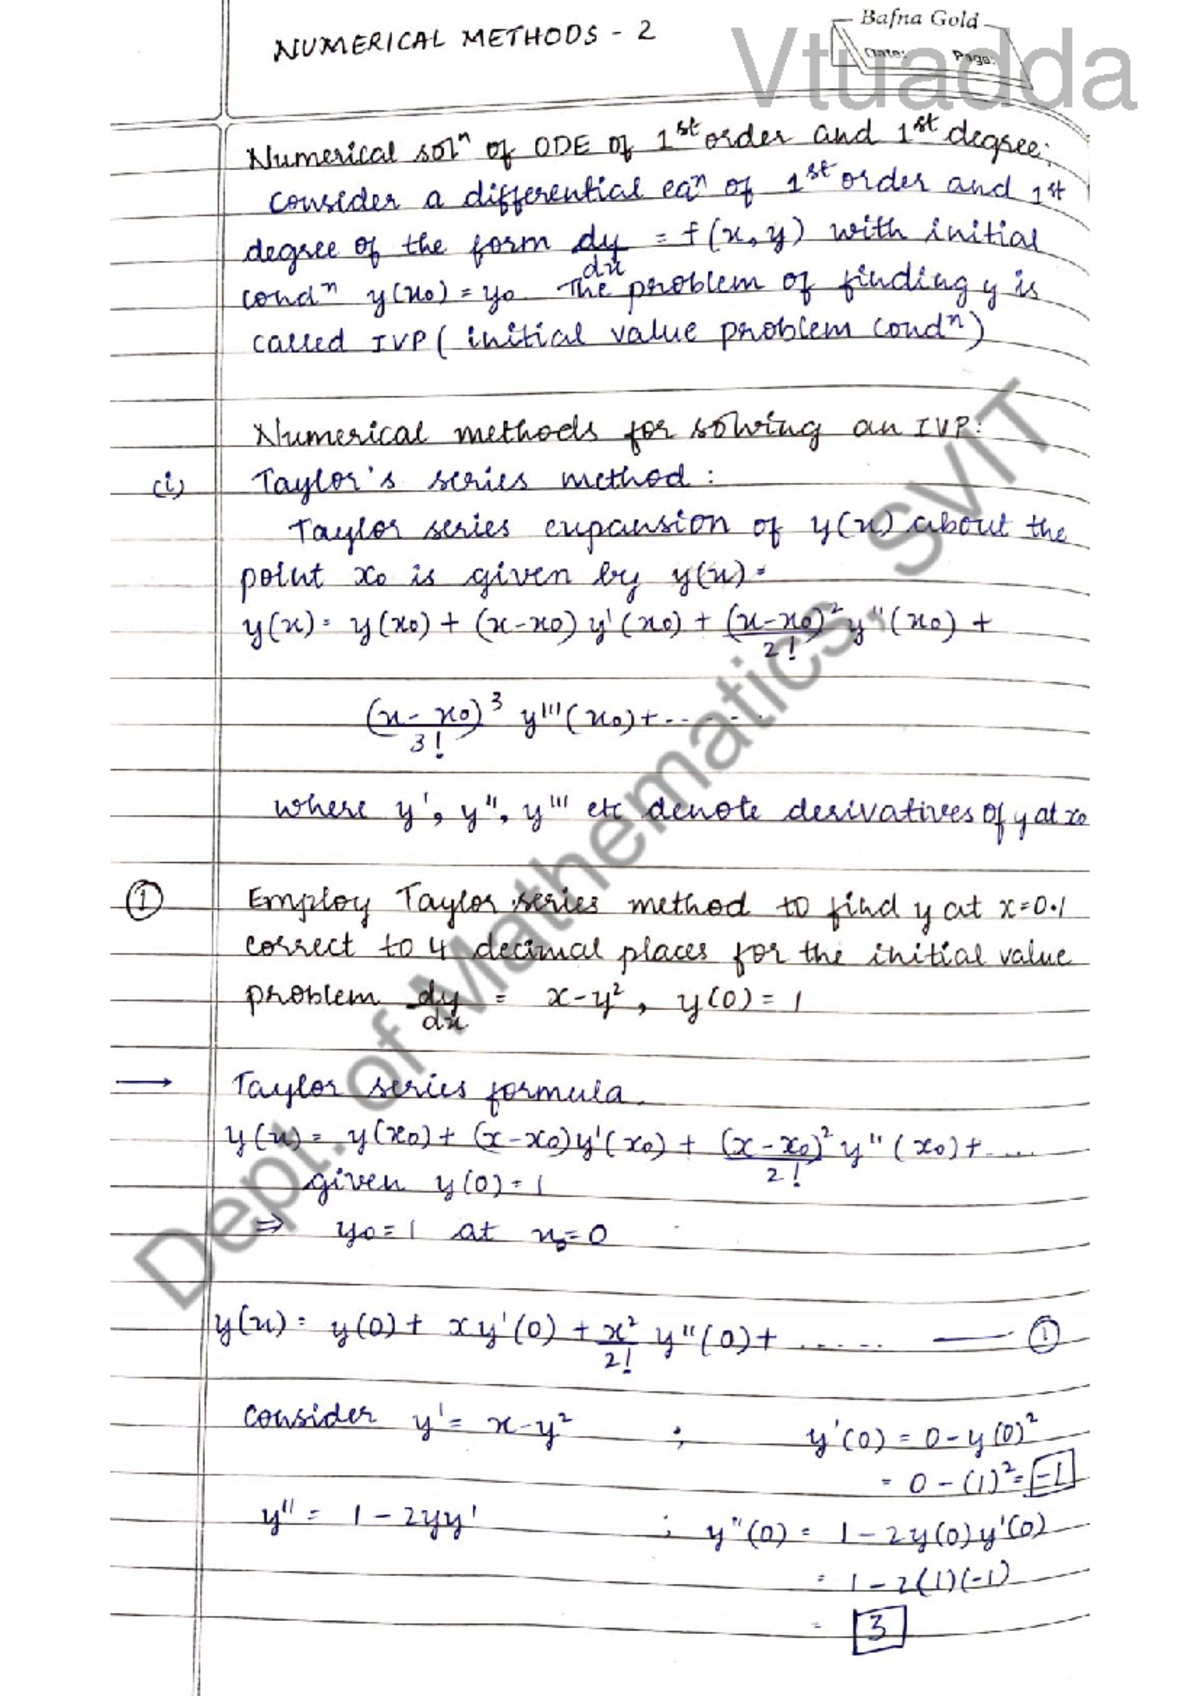 NUMERICAL METHODS - 2
Bafna Gold
Date: Page:
Vtuadda
Numerical solⁿ of ODE of 1st order and 1st degree:
Consider a differential eqⁿ of 1st order and 1st
degree of the form dy/dx = f(x, y) with initial
condⁿ y(x₀) = y₀. The problem of finding y is
called IVP (initial value problem condⁿ)
Numerical methods for solving an IVP:
(i) Taylor's series method:
Taylor series expansion of y(x) about the
point x₀ is given by y(x)=
y(x) = y(x₀) + (x-x₀) y'(x₀) + (x-x₀)²/2! y''(x₀) +
(x-x₀)³/3! y'''(x₀) + ------
where y', y'', y''' etc denote derivatives of y at x₀
① Employ Taylor series method to find y at x=0.1
correct to 4 decimal places for the initial value
problem dy/dx = x-y², y(0) = 1
→ Taylor series formula.
y(x) = y(x₀) + (x-x₀)y'(x₀) + (x-x₀)²/2! y''(x₀) + ....
given y(0) = 1
⇒ y₀ = 1 at x₀ = 0
y(x) = y(0) + x y'(0) + x²/2! y''(0) + ...... — ①
consider y' = x-y² ; y'(0) = 0 - y(0)²
= 0 - (1)² = -1
y'' = 1 - 2yy' ; y''(0) = 1 - 2y(0)y'(0)
= 1 - 2(1)(-1)
= 3
Dept. of Mathematics, SVIT